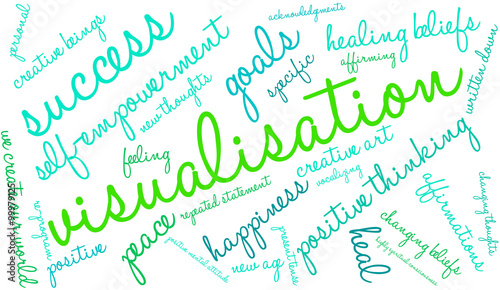 personal
creative beings
success
self-empowerment
new thoughts
acknowledgments
goals
specific
healing beliefs
affirming
written down
visualisation
feeling
we create our world
reprogram
positive
peace
repeated statement
happiness
creative art
vocalizing
positive thinking
affirmations
changing things
changing beliefs
positive mental attitude
new age
present tense
heal
highly spirited consciousness
Adobe Stock